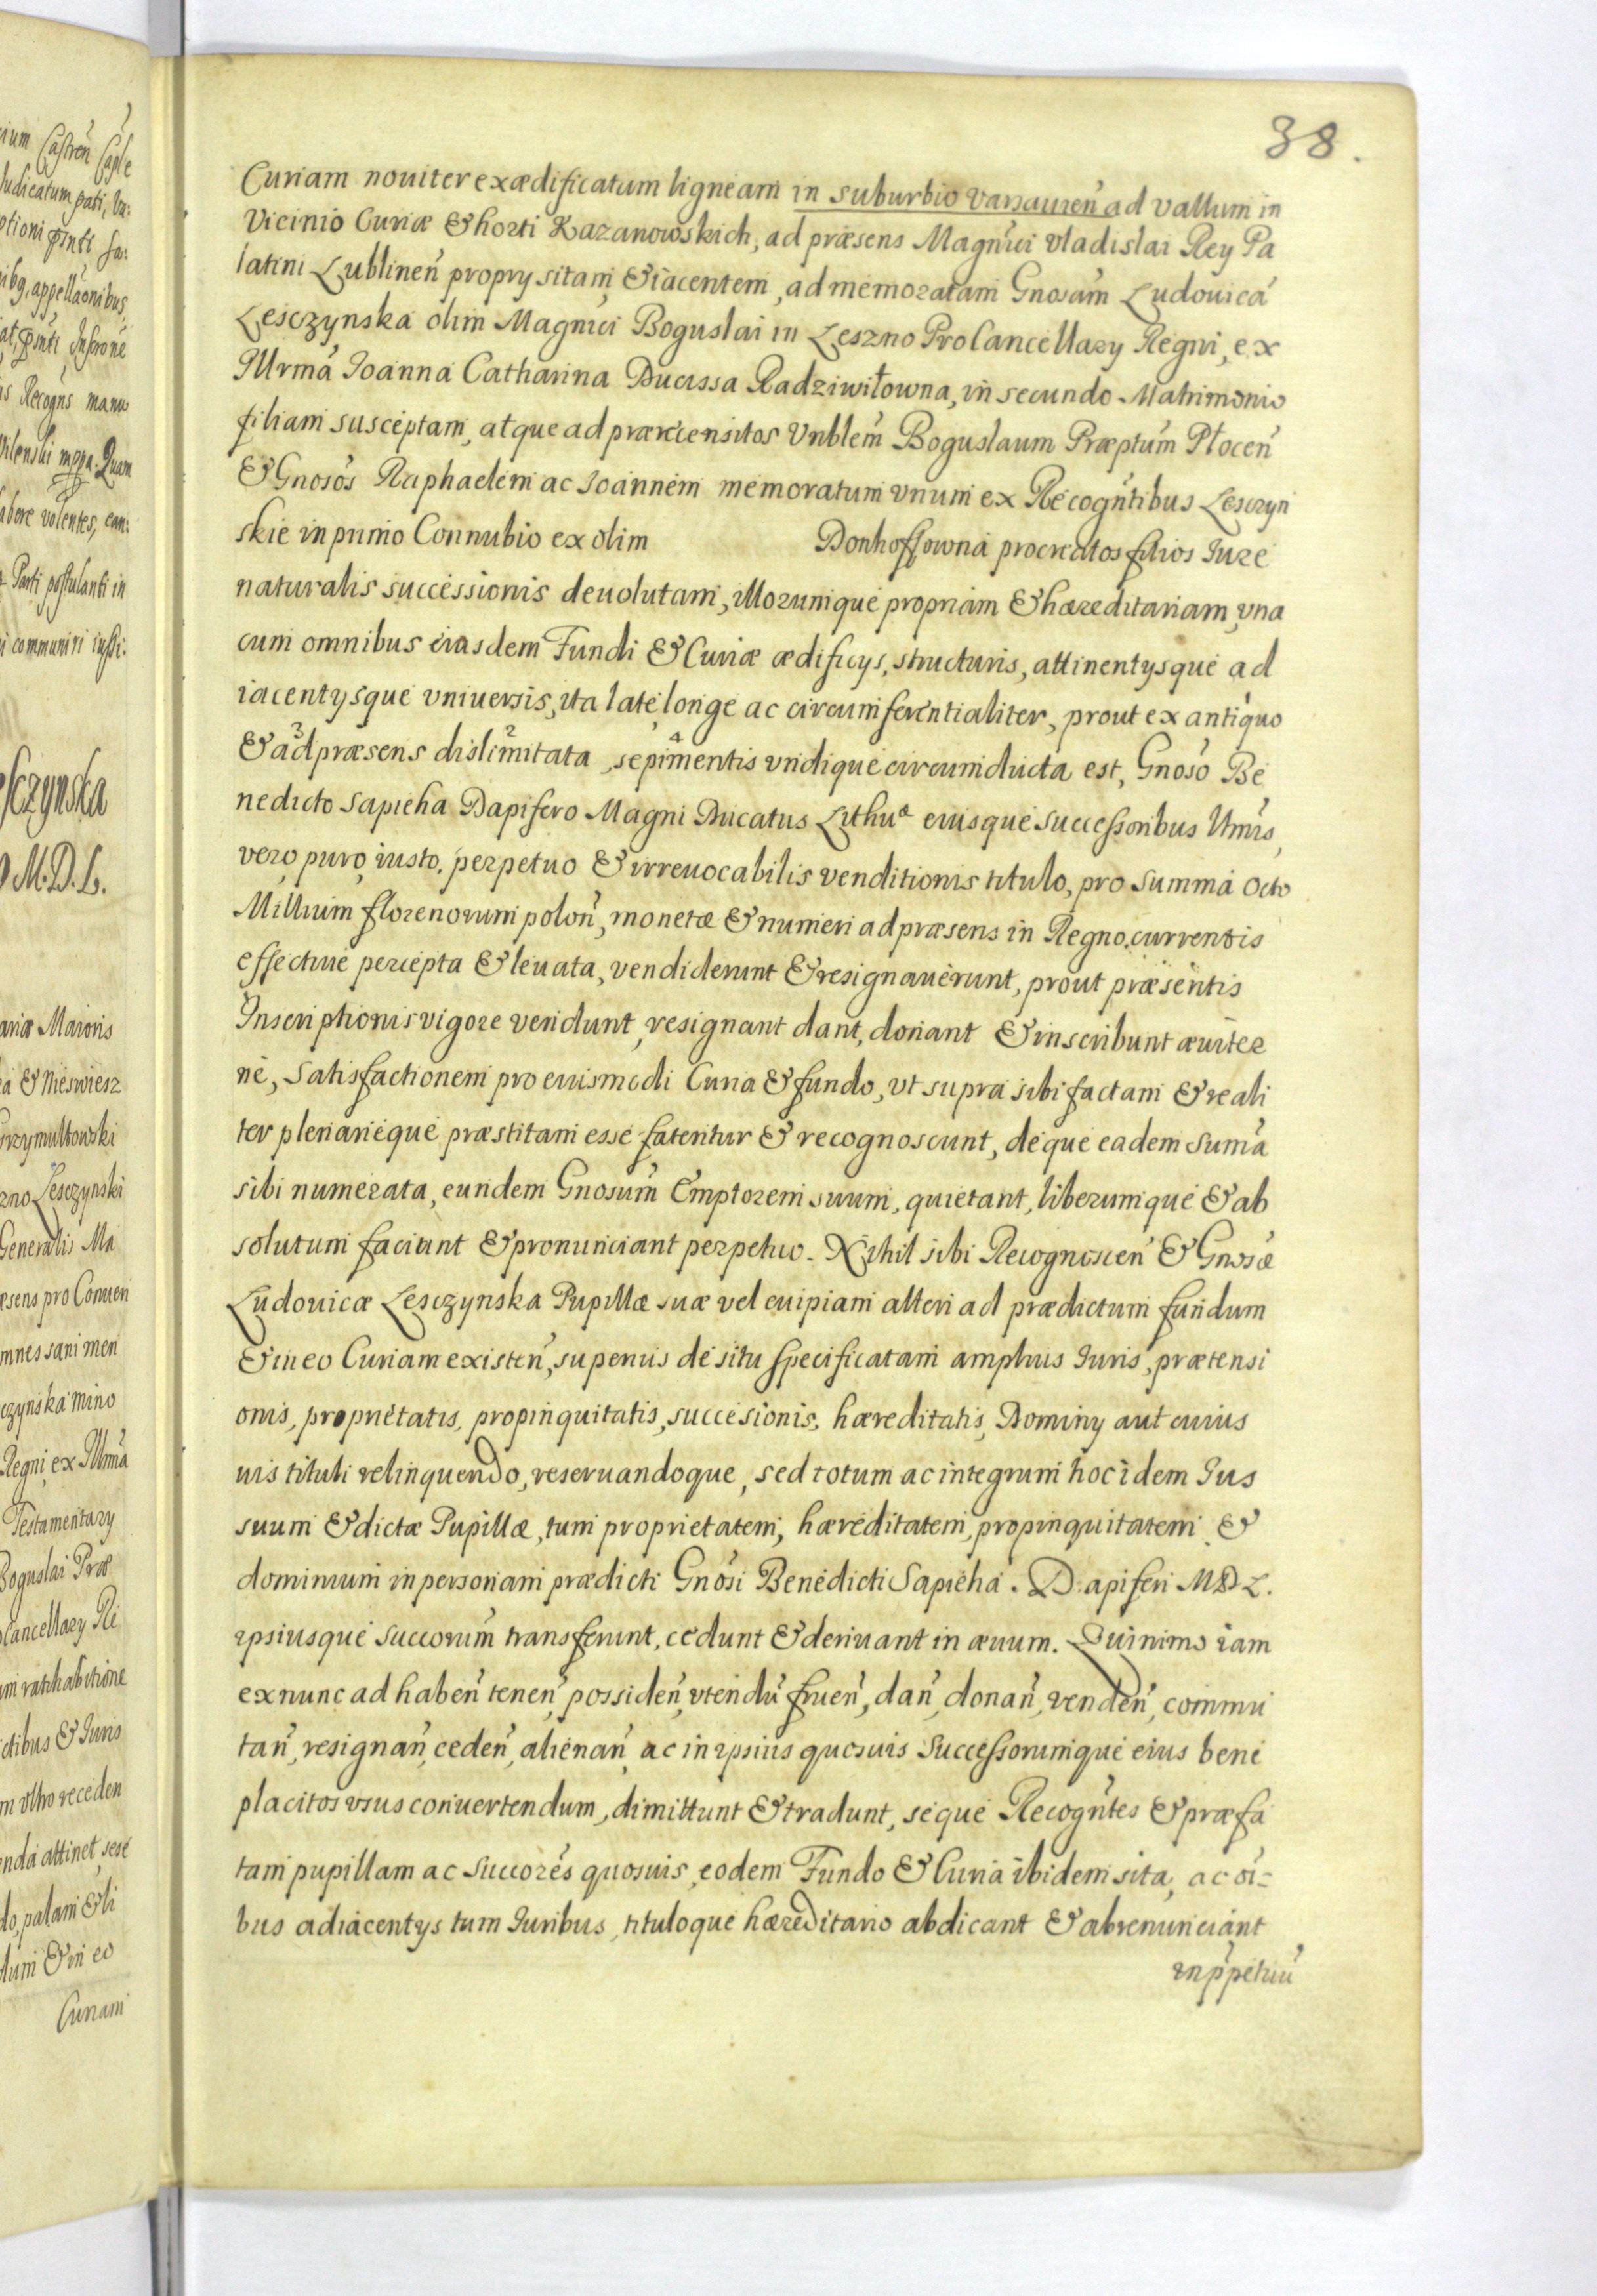 38.
Curiam nouiter exædificatum ligneam in suburbio Varsauien̄ ad vallum in
Vicinio Curiæ & horti Kazanowskich, ad præsens Magn̄ci Vladislai Rey Pa
latini Lublinen̄ propry sitam & iacentem, ad memoratam Gnosam̄ Ludouicá
Lesczynska olim Magn̄ici Boguslai in Leszno ProCancellary Regni, ex
Illrmā Ioanna Catharina Ducissa Radziwiłowna, in secundo Matrimonio
filiam susceptam, atque ad præcensitos Vnblem̄ Boguslaum Præptum̄ Płocen̄
& Gnosos̄ Raphaelem ac Ioannem memoratum vnum ex Recogn̄tibus Lesczyn
skie in primo Connubio ex olim Donhoffowna procreatos filios Iure
naturalis successionis deuolutam, illorumque propriam & hæreditariam, vna
cum omnibus eiusdem Fundi & Curiæ ædificys, structuris, attinentysque ad
iacentysque vniuersis, ita late, longe ac circumferentialiter, prout ex antiquo
& ad præsens dislimitata, sepimentis vndique circumducta est, Gnoso̅ Be
nedicto Sapieha Dapifero Magni Ducatus Lithuæ eiusque successoribus Utrius,
vero, puro, iusto, perpetuo & irreuocabilis venditionis titulo, pro summa octo
Millium florenorum polon̄, monetæ & numeri ad præsens in Regno currentis
effectiue percepta & leuata, vendiderunt & resignauerunt, prout præsentis
Inscriptionis vigore vendunt, resignant dant, donant & inscribunt æuiter
ne, satisfactionem pro eiusmodi Curia & fundo, vt supra sibi factam & reali
ter plenarieque præstitam esse fatentur & recognoscunt, deque eadem sum̄a
sibi numerata, eundem Gnosum̄ Emptorem suum, quietant, liberumque & ab
solutum faciunt & pronunciant perpetuo. Nihil sibi Recognoscen̄ & Gnosǣ
Ludouicæ Lesczynska Pupillæ suæ vel cuipiam alteri ad prædictum fundum
& in eo Curiam existen̄, superius de situ specificatam amplius Iuris, prætensi
onis, proprietatis, propinquitatis, succesionis, hæreditatis, Dominy aut cuius
uis tituli relinquendo, reseruandoque, sed totum ac integrum hoc idem Ius
suum & dictæ Pupillæ, tum proprietatem, hæreditatem, propinquitatem &
dominium in personam prædicti Gnosi̅ Benedicti Sapieha. Dapiferi MDL.
ipsiusque succorum̄ transferunt, cedunt & deriuant in æuum. Quinimo iam
ex nunc ad haben̄ tenen̄, possiden̄, vtendū fruen̄, dan̄, donan̄, venden̄, commu
tan̄, resignan̄, ceden̄, alienan̄, ac in ipsius quosuis Successorumque eius bene
placitos vsus conuertendum, dimittunt & tradunt, seque Recogn̄tes & præfa
tam pupillam ac Succores̄ quosuis, eodem Fundo & Curia ibidem sita, ac oī=
bus adiacentys tum Iuribus, tituloque hæreditario abdicant & abrenunciant
in p̄petuū